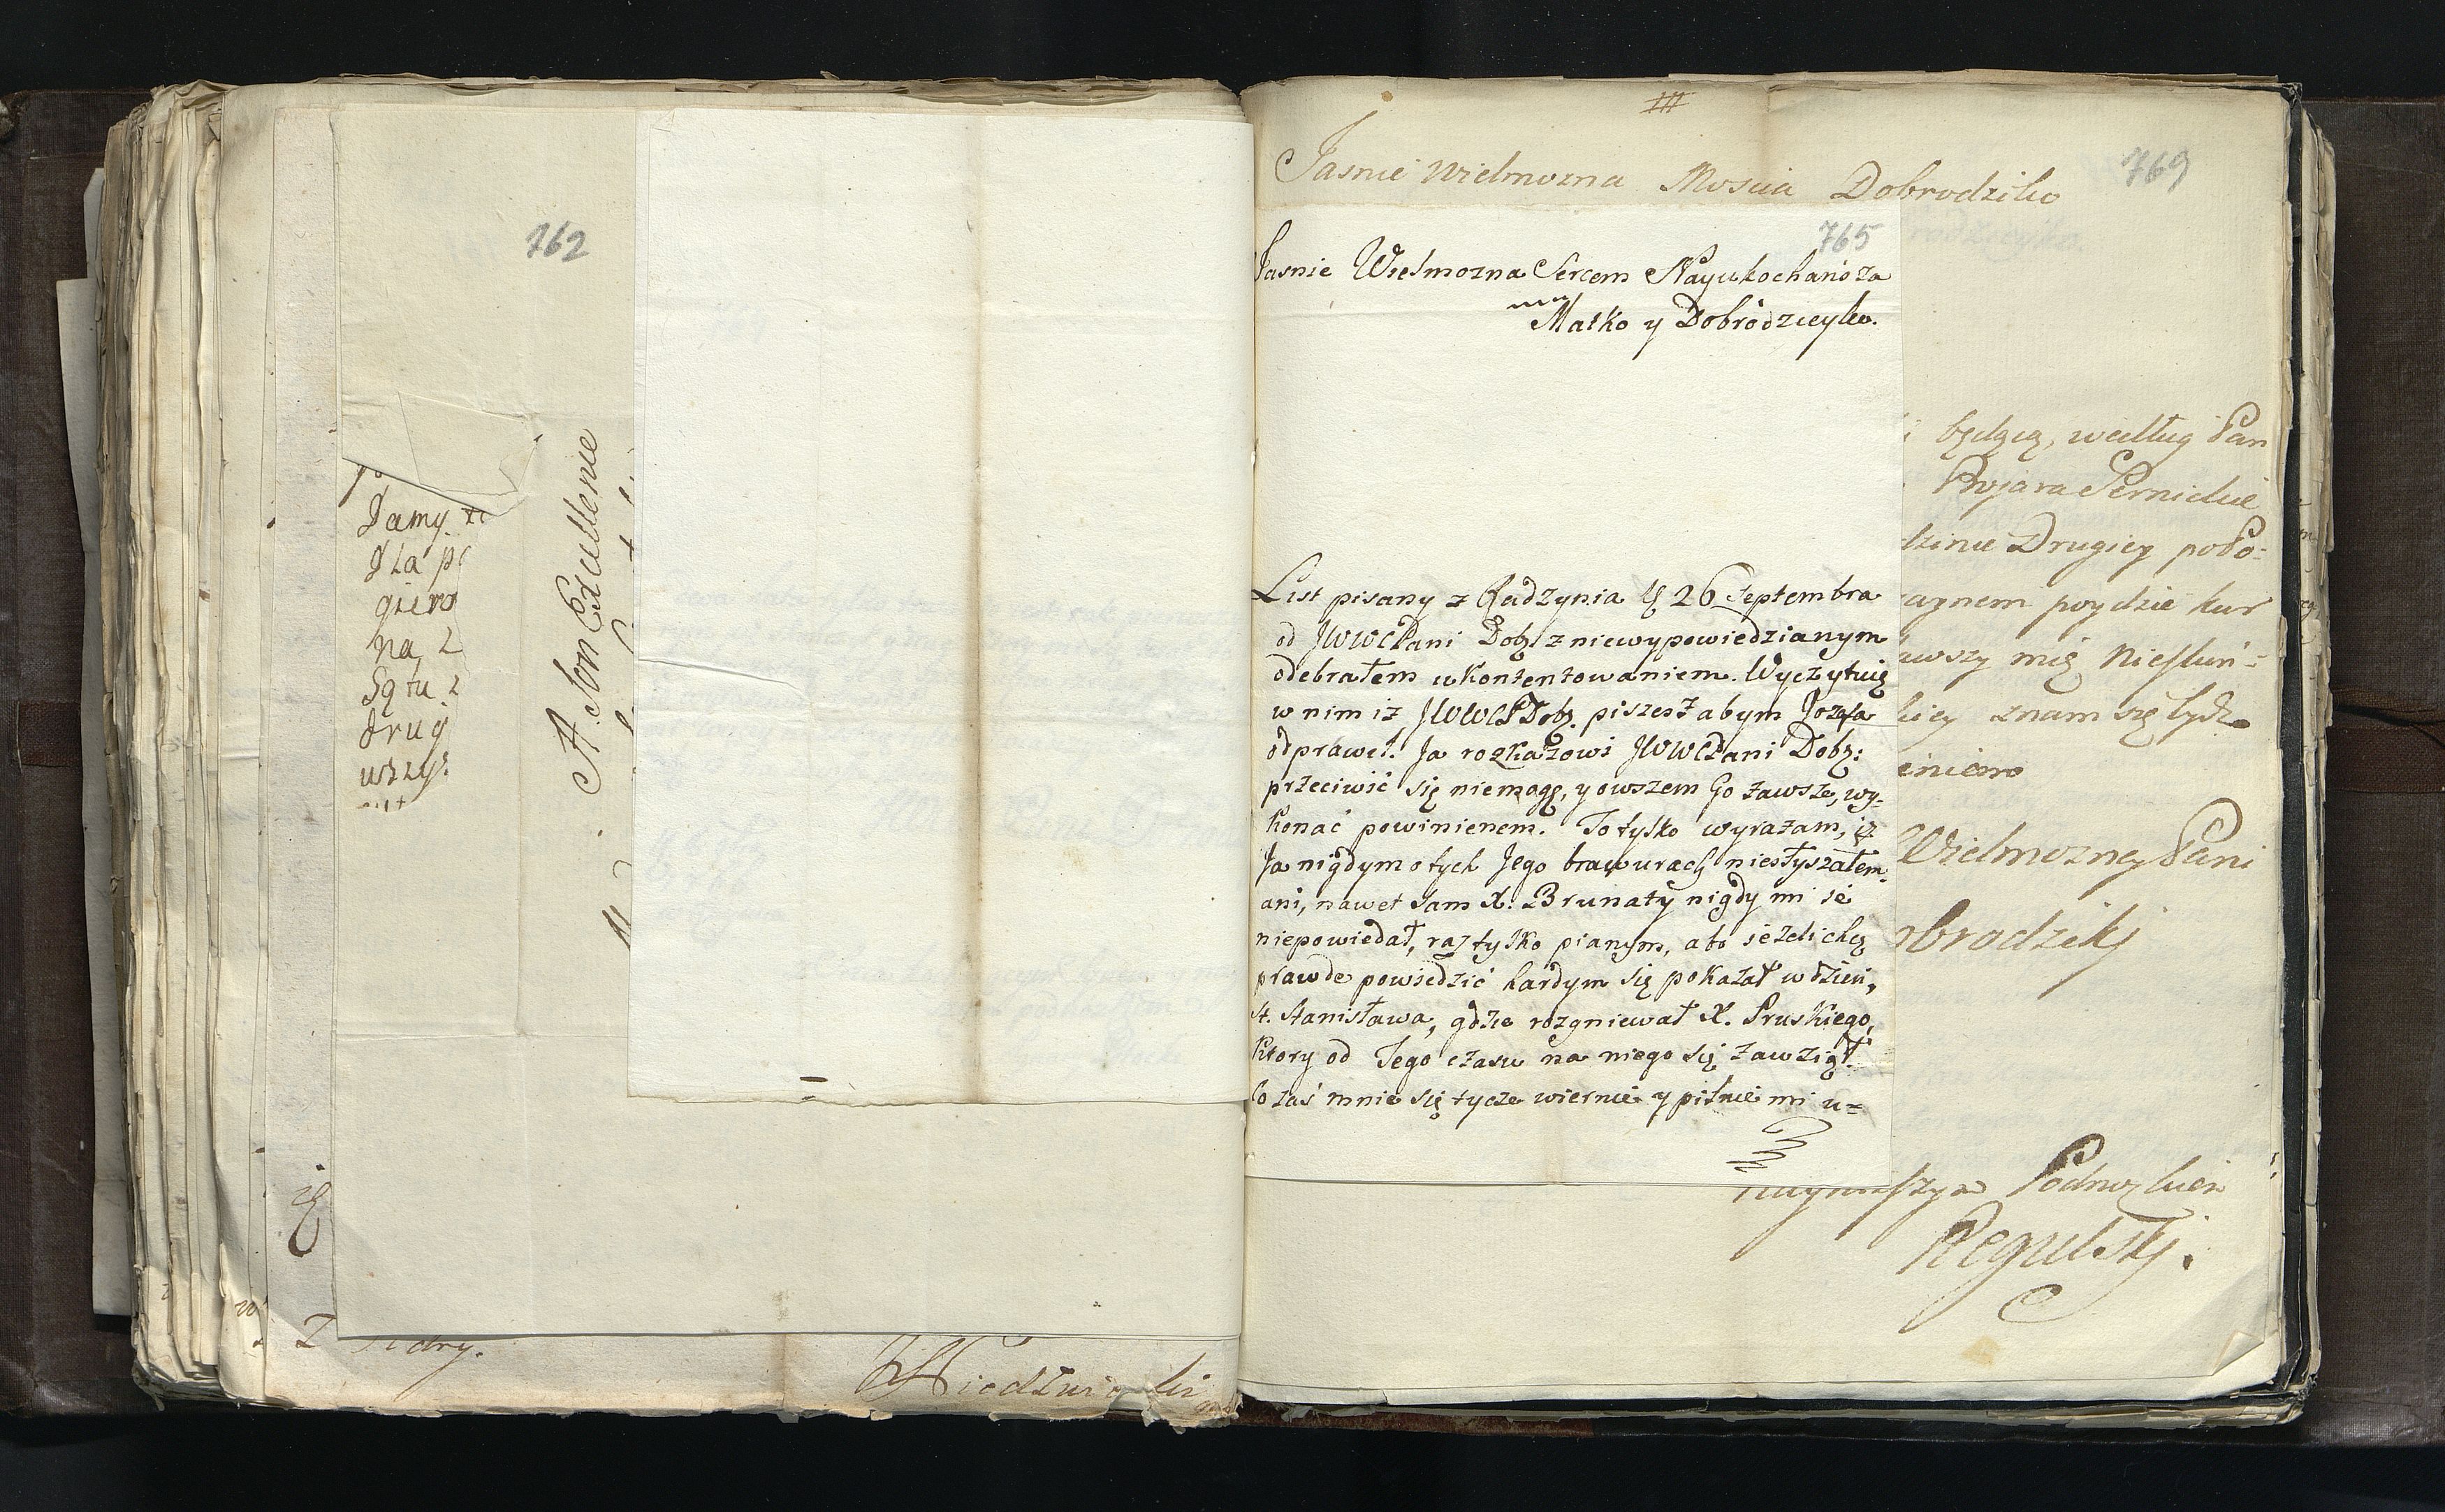 762
Damy
Dla
na
Są tu
drug
A Son Excellence
Niedźwiedzki
Jasnie Wielmozna Moscia Dobrodziko
769
765
Jasnie Wielmozna Sercem Nayukochańsza
Matko y Dobrodzieyko.
List pisany z Radzynia 26 Septembra
od JWWCPani Dobz z niewypowiedzianym
odebrałem ukontentowaniem. Wyczytuię
w nim iż JWWCPDobz. piszesz abym Jozefa
odprawił. Ja rozkazowi JWWCPani Dobz:
przeciwić się niemogę, y owszem Go zawsze, wy-
konać powinienem. To tylko wyrażam, iż
Ja nigdym o tych Jego brawurach niesłyszałem,
ani, nawet sam X. Brunaty nigdy mi ie
niepowiedał, raz tylko pianym, abo ieżeli chcę
prawde powiedzić hardym się pokazał w dzień,
St. Stanisława, gdzie rozgniewał X. Pruskiego,
ktory od Tego czasu na niego się zawziął.
Co zaś mnie się tycze wiernie y pilnie mi u=
będącą, według Pan
Drugiey
poydzie kur
mię
znam się bydz
Wielmozney Pani
obrodziki
Podnozkiem
Regulski.